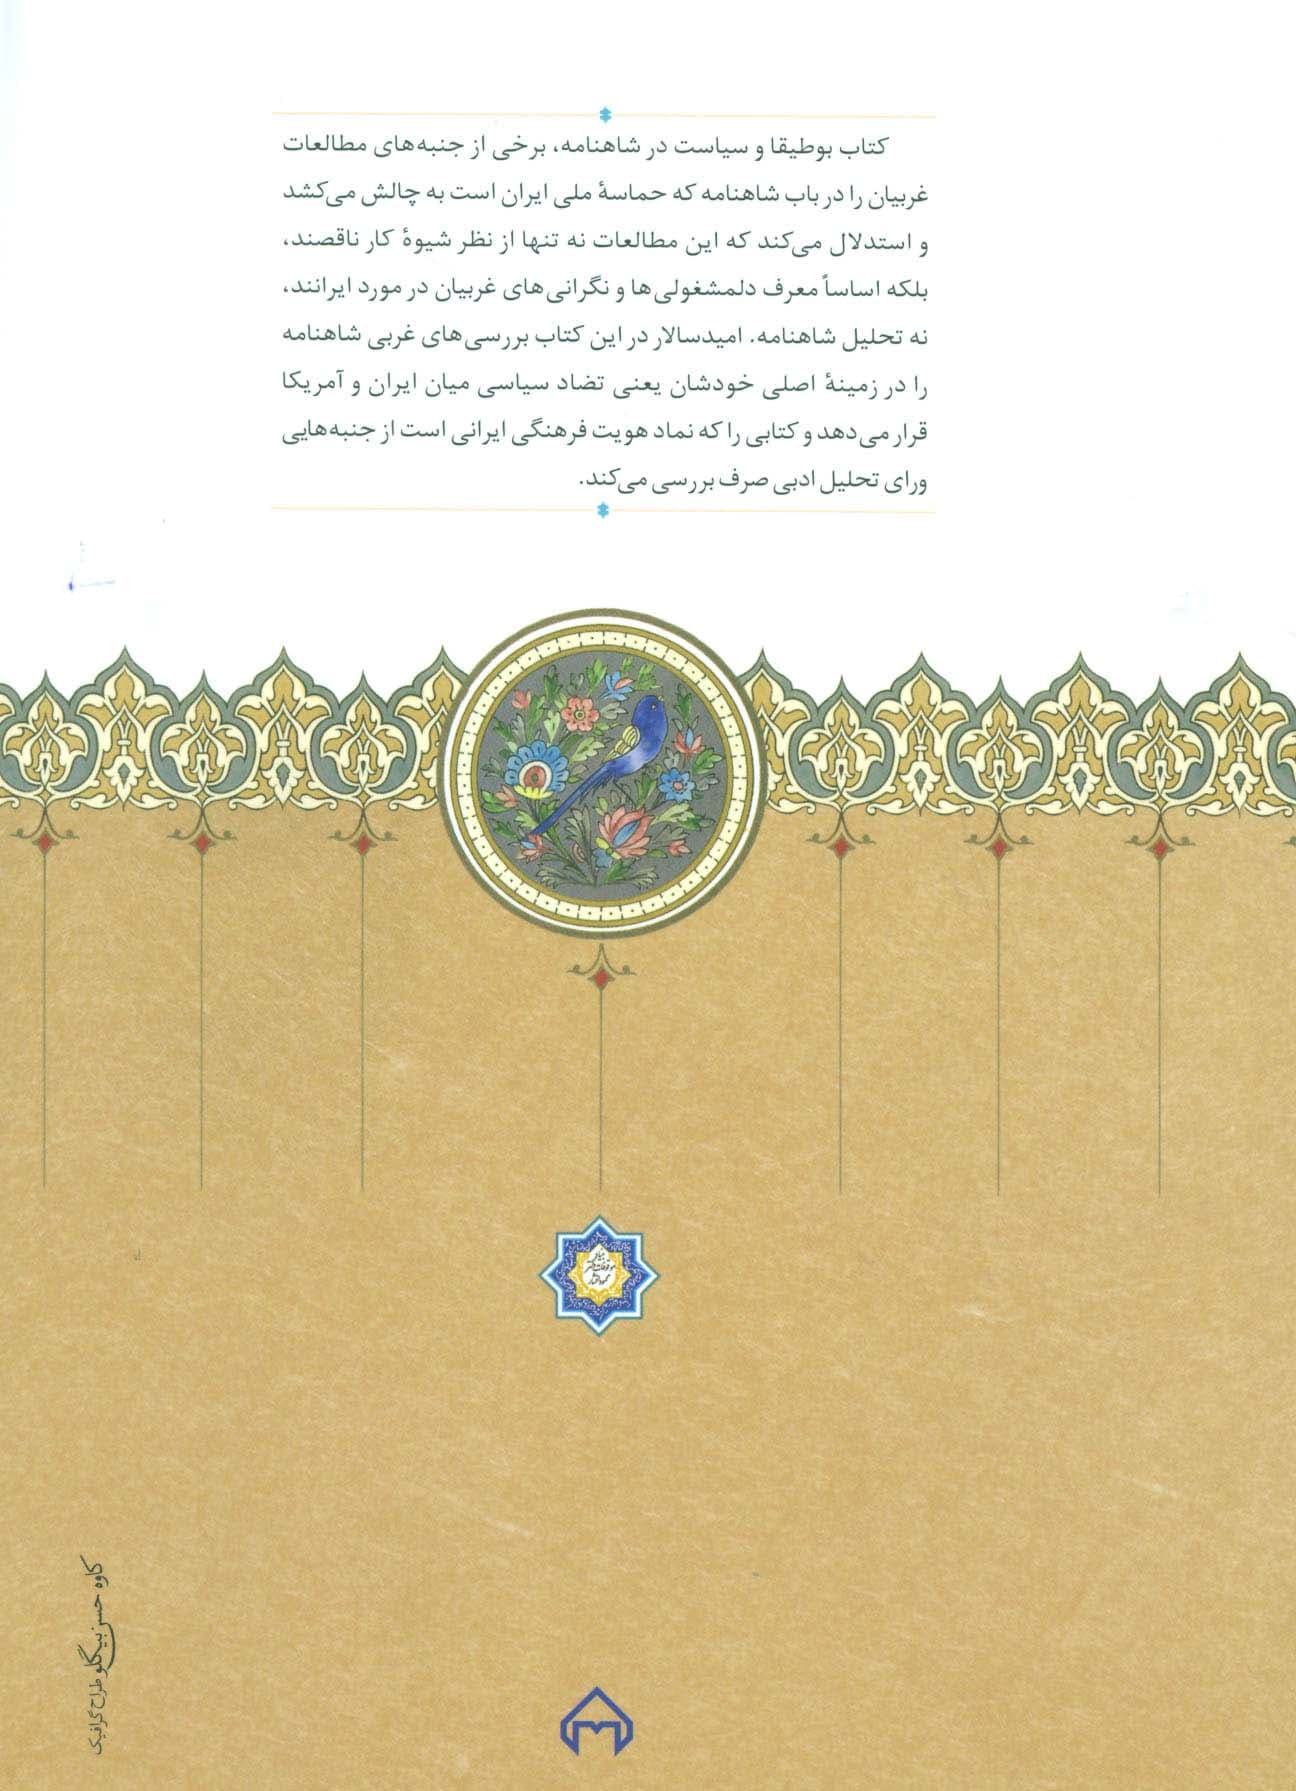 کتاب بوطیقا و سیاست در شاهنامه، برخی از جنبه‌های مطالعات
غربیان را در باب شاهنامه که حماسهٔ ملی ایران است به چالش می‌کشد
و استدلال می‌کند که این مطالعات نه تنها از نظر شیوهٔ کار ناقصند،
بلکه اساساً معرف دلمشغولی‌ها و نگرانی‌های غربیان در مورد ایرانند،
نه تحلیل شاهنامه. امیدسالار در این کتاب بررسی‌های غربی شاهنامه
را در زمینهٔ اصلی خودشان یعنی تضاد سیاسی میان ایران و آمریکا
قرار می‌دهد و کتابی را که نماد هویت فرهنگی ایرانی است از جنبه‌هایی
ورای تحلیل ادبی صرف بررسی می‌کند.
بنیاد
موقوفات دکتر
محمود افشار
کاوه حسن بیگلو طراح گرافیک